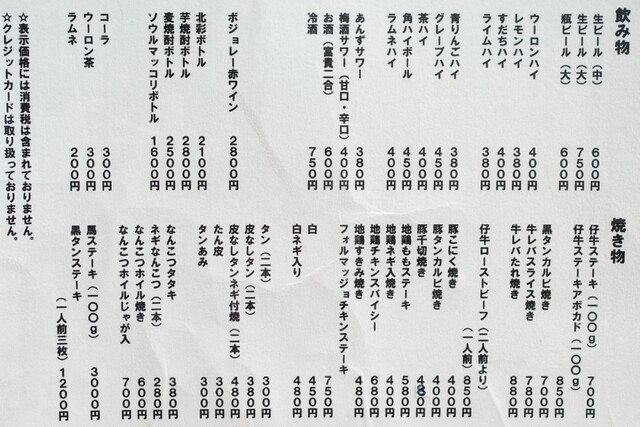 飲み物
生ビール（中） 600円
生ビール（大） 750円
瓶ビール（大） 600円
ウーロンハイ 400円
レモンハイ 380円
すだちハイ 400円
ライムハイ 380円
青りんごハイ 380円
グレープハイ 450円
茶ハイ 400円
角ハイボール 450円
ラムネハイ 400円
あんずサワー 380円
梅酒サワー（甘口・辛口） 400円
お酒（富貴二合） 600円
冷酒 750円
ボジョレー赤ワイン 2800円
北彩ボトル 2100円
芋焼酎ボトル 2800円
麦焼酎ボトル 2500円
ソウルマッコリボトル 1600円
コーラ 300円
ウーロン茶 300円
ラムネ 200円
焼き物
仔牛ステーキ（一〇〇g） 700円
仔牛ステーキアボカド（一〇〇g） 850円
黒タンカルビ焼き 700円
牛レバスライス焼き 780円
牛レバたれ焼き 880円
仔牛ローストビーフ（二人前より）
（一人前） 850円
豚こにく焼き 400円
豚タンカルビ焼き 400円
豚千切焼き 480円
地鶏ももステーキ 580円
地鶏ネギ入焼き 400円
地鶏チキンスパイシー 680円
地鶏すきみ焼き 480円
フォルマッジョチキンステーキ 750円
白 450円
白ネギ入り 480円
タン（二本） 300円
皮なしタン（二本） 380円
皮なしタンネギ付焼（二本） 480円
たん皮 300円
タンあみ 300円
なんこつタタキ 380円
ネギなんこつ（二本） 280円
なんこつホイル焼き 600円
なんこつホイルじゃが入 700円
馬ステーキ（一〇〇g） 3000円
黒タンステーキ
（一人前三枚） 1200円
☆表示価格には消費税は含まれておりません。
☆クレジットカードは取り扱っておりません。